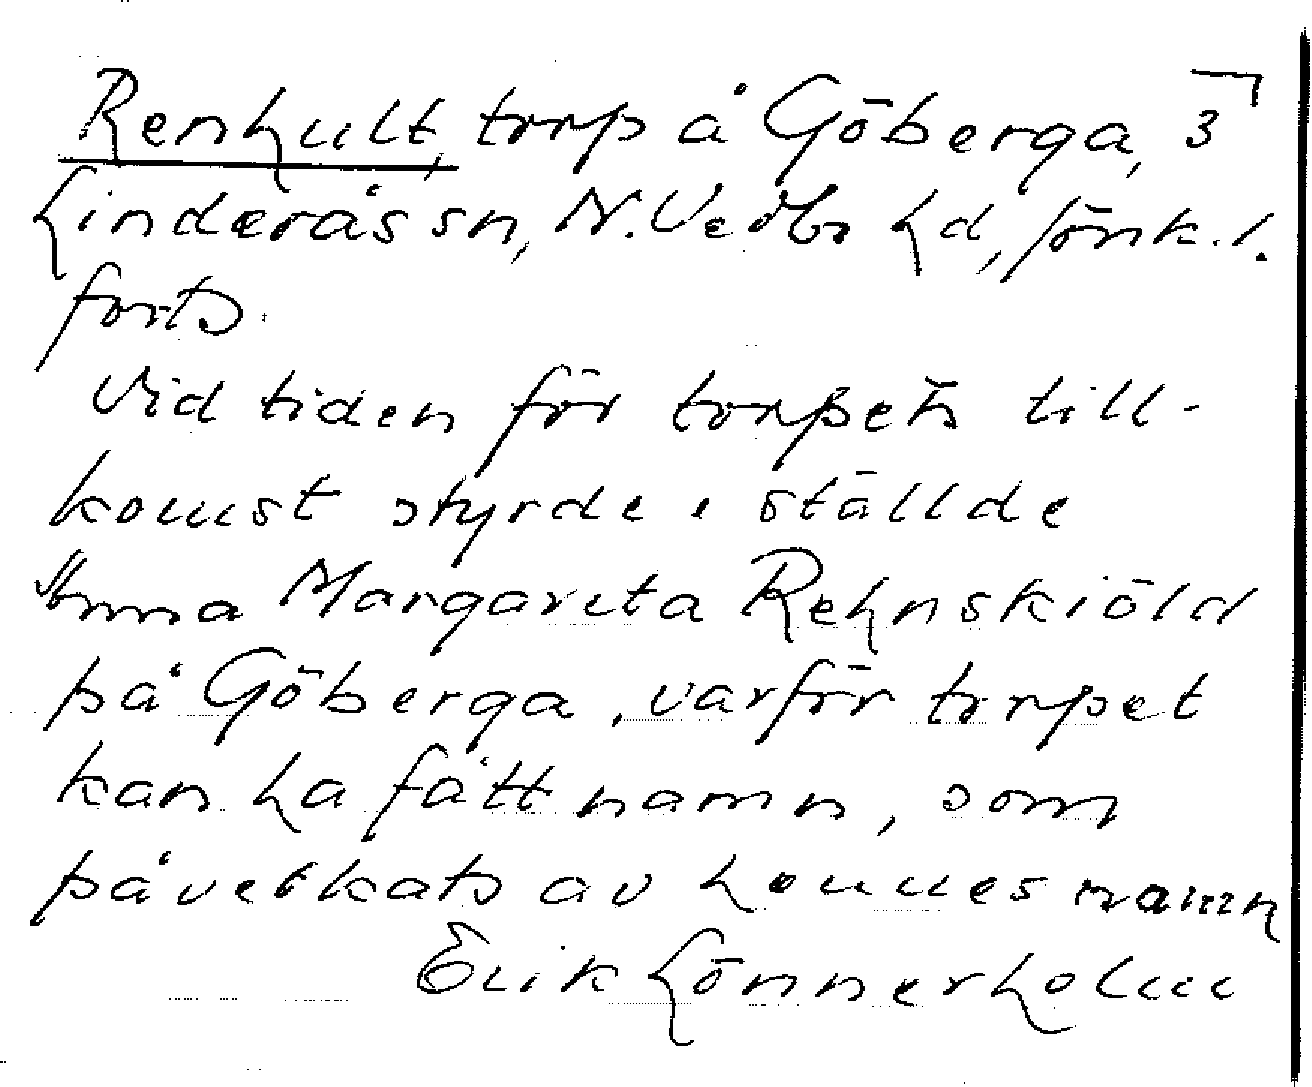 Renhult, torp å Göberga, 3
Linderås sn, N. Vedbo hd, Jönk. l.
forts.
Vid tiden för torpets till-
komst styrde o ställde
Anna Margareta Rehnskiöld
på Göberga, varför torpet
kan ha fått namn, som
påverkats av hennes namn
Erik Lönnerholm